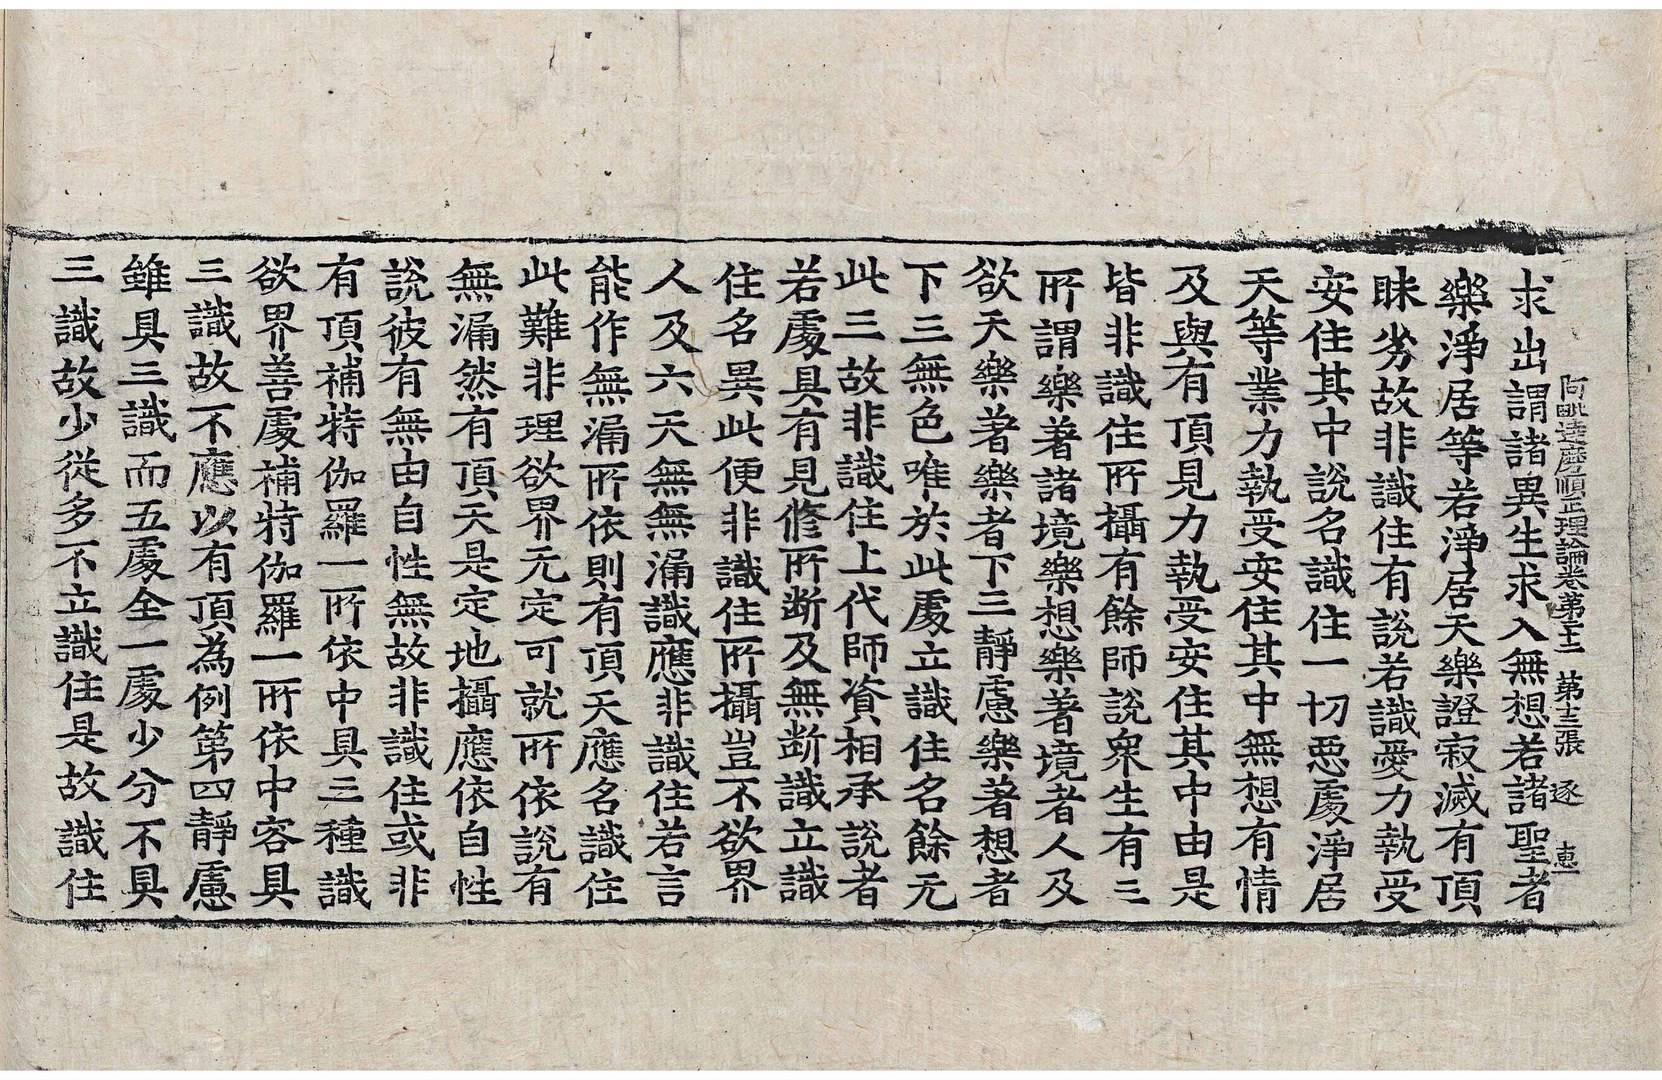 阿毗達磨順正理論卷第二十二 第十三張 逐 惠
求出謂諸異生求入無想若諸聖者
樂淨居等若淨居天樂證寂滅有頂
昧劣故非識住有說若識愛力執受
安住其中說名識住一切惡處淨居
天等業力執受安住其中無想有情
及與有頂見力執受安住其中由是
皆非識住所攝有餘師說衆生有三
所謂樂著諸境樂想樂著境者人及
欲天樂著樂者下三靜慮樂著想者
下三無色唯於此處立識住名餘无
此三故非識住上代師資相承說者
若處具有見修所断及無断識立識
住名異此便非識住所攝豈不欲界
人及六天無無漏識應非識住若言
能作無漏所依則有頂天應名識住
此難非理欲界无定可就所依說有
無漏然有頂天是定地攝應依自性
說彼有無由自性無故非識住或非
有頂補特伽羅一所依中具三種識
欲界善處補特伽羅一所依中容具
三識故不應以有頂為例第四靜慮
雖具三識而五處全一處少分不具
三識故少從多不立識住是故識住